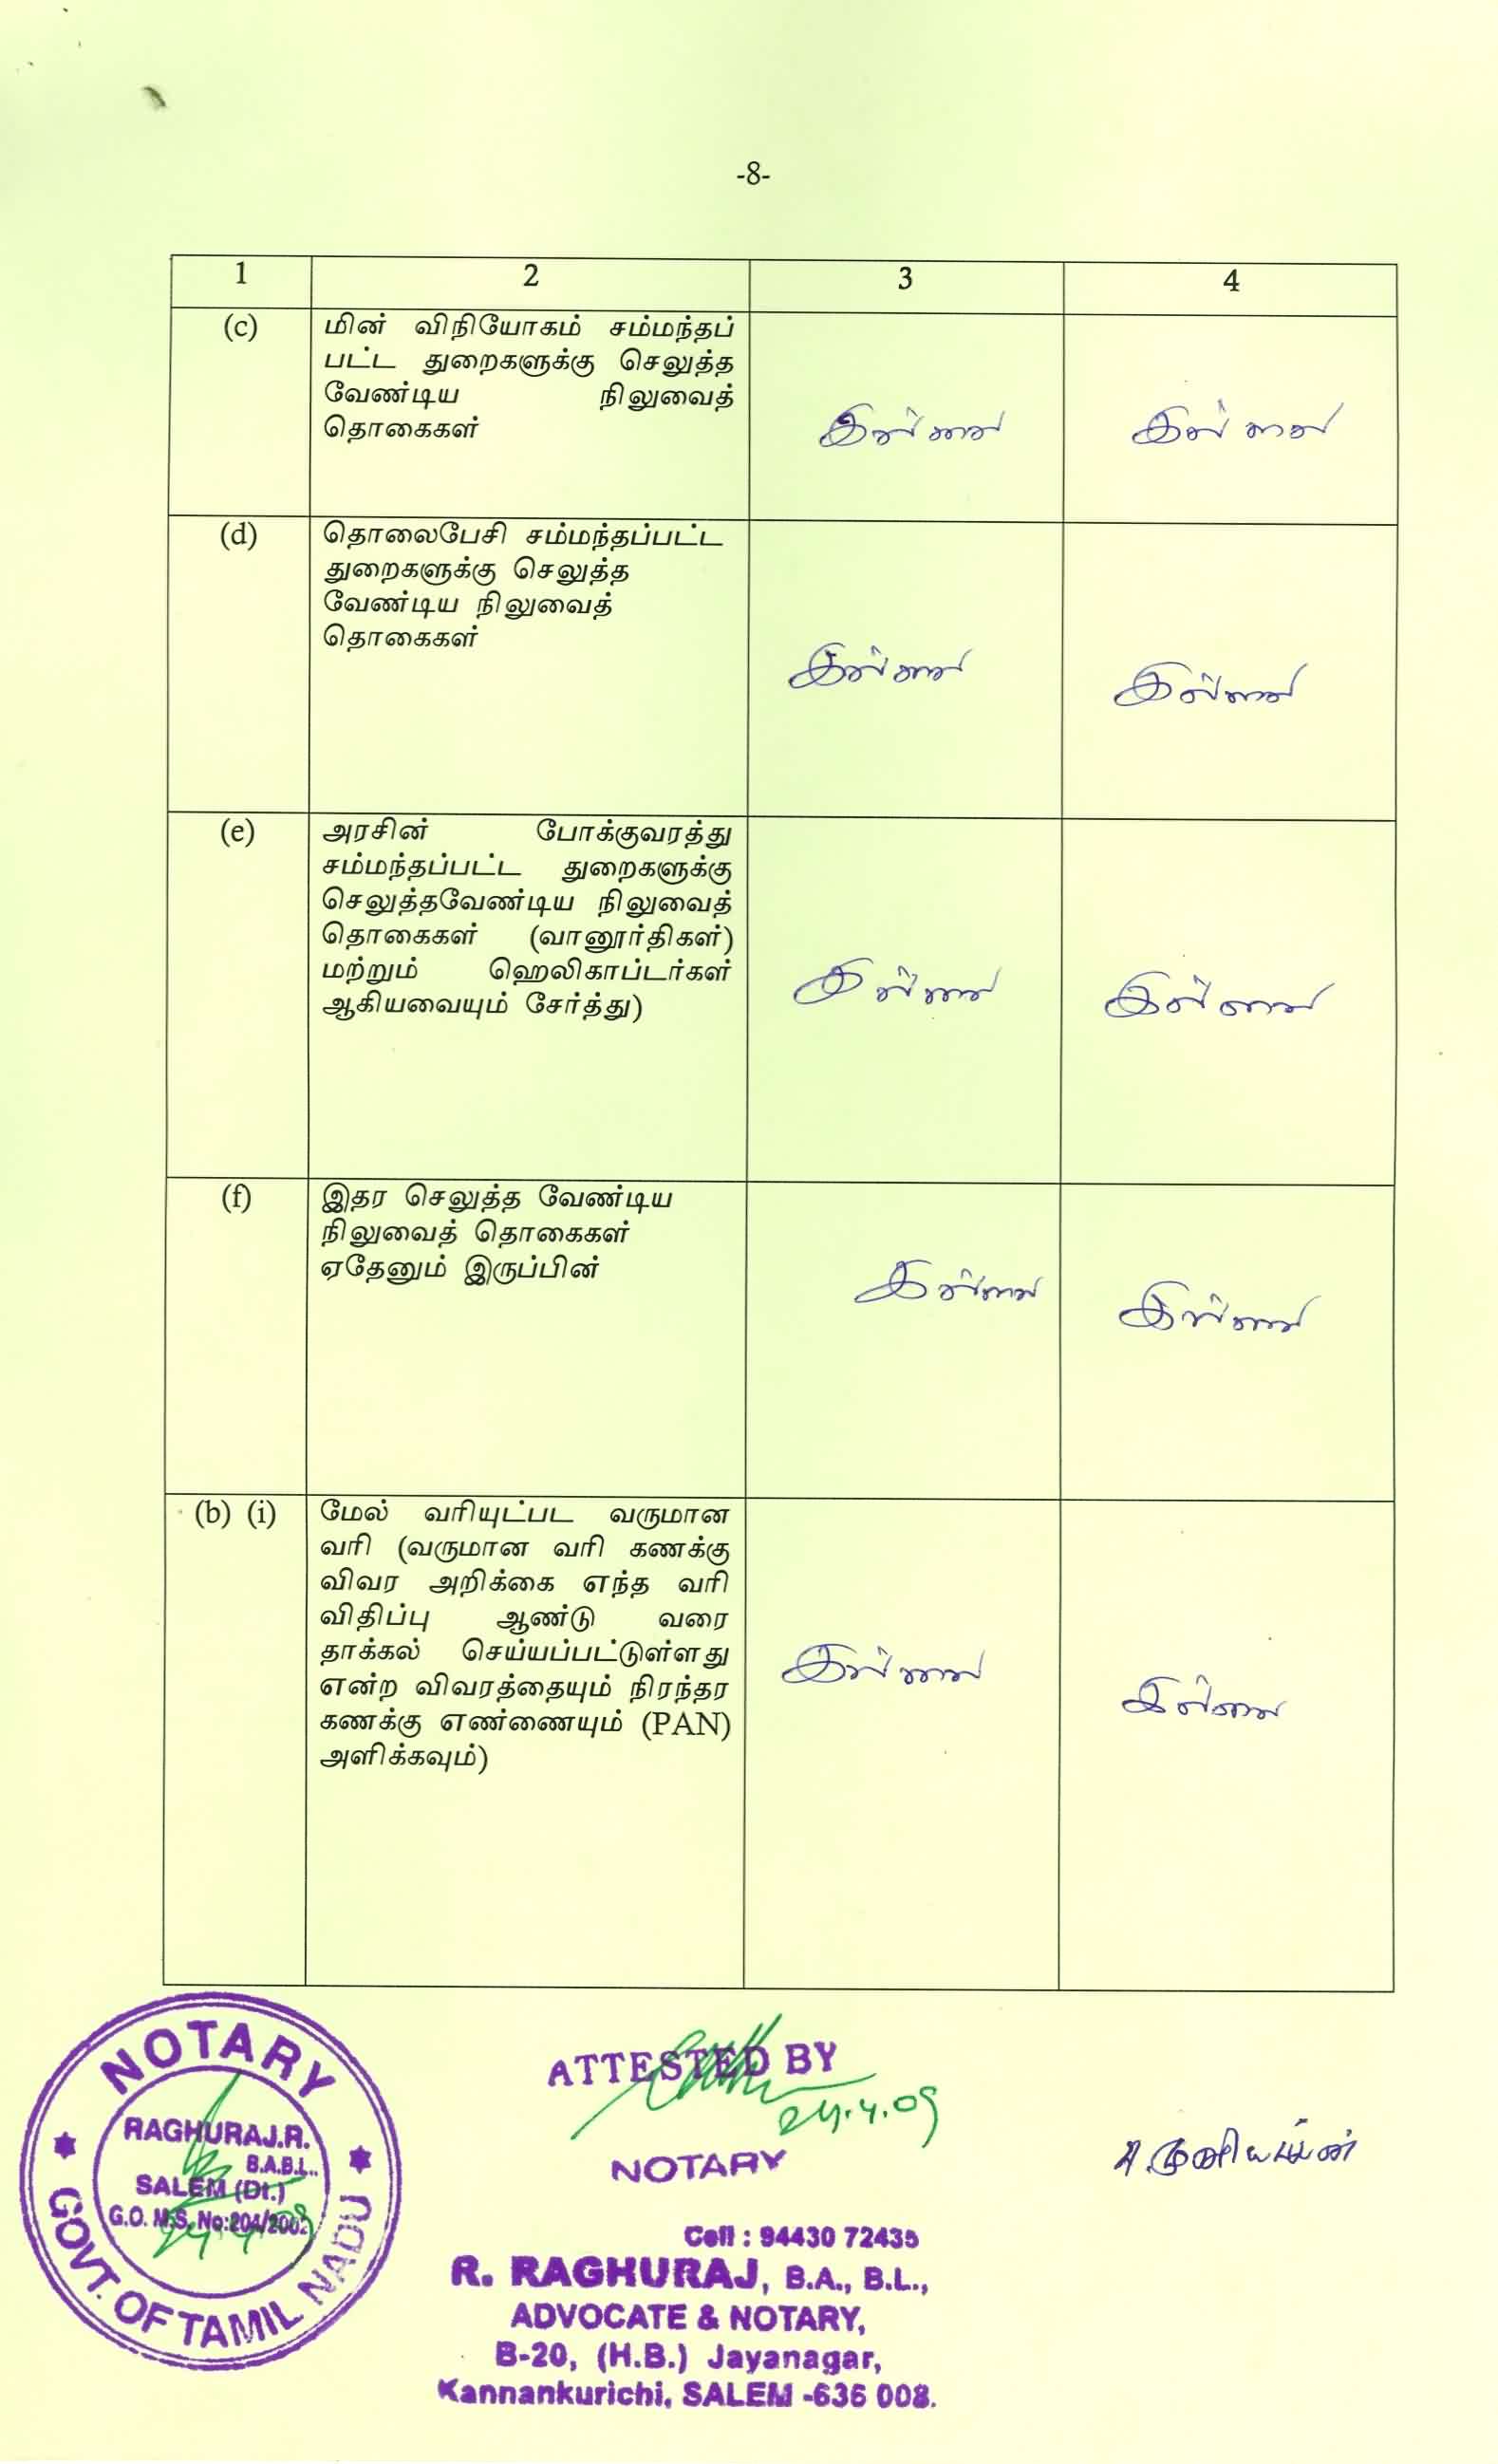 -8-
1 2 3 4
(c) மின் விநியோகம் சம்மந்தப்
பட்ட துறைகளுக்கு செலுத்த
வேண்டிய நிலுவைத்
தொகைகள்
இல்லை இல்லை
(d) தொலைபேசி சம்மந்தப்பட்ட
துறைகளுக்கு செலுத்த
வேண்டிய நிலுவைத்
தொகைகள்
இல்லை இல்லை
(e) அரசின் போக்குவரத்து
சம்மந்தப்பட்ட துறைகளுக்கு
செலுத்தவேண்டிய நிலுவைத்
தொகைகள் (வானூர்திகள்)
மற்றும் ஹெலிகாப்டர்கள்
ஆகியவையும் சேர்த்து)
இல்லை இல்லை
(f) இதர செலுத்த வேண்டிய
நிலுவைத் தொகைகள்
ஏதேனும் இருப்பின்
இல்லை இல்லை
(b) (i) மேல் வரியுட்பட வருமான
வரி (வருமான வரி கணக்கு
விவர அறிக்கை எந்த வரி
விதிப்பு ஆண்டு வரை
தாக்கல் செய்யப்பட்டுள்ளது
என்ற விவரத்தையும் நிரந்தர
கணக்கு எண்ணையும் (PAN)
அளிக்கவும்)
இல்லை இல்லை
NOTARY
RAGHURAJ.R.
B.A.B.L.,
SALEM (Dt.)
G.O. M.S. No:204/2002
GOVT. OF TAMIL NADU
ATTESTED BY
24.4.09
NOTARY
Cell : 94430 72435
R. RAGHURAJ, B.A., B.L.,
ADVOCATE & NOTARY,
B-20, (H.B.) Jayanagar,
Kannankurichi, SALEM -636 008.